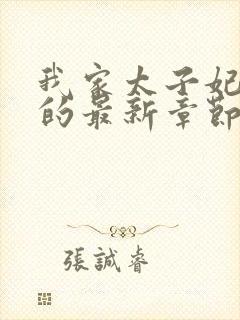 我家太子妃
的最新章節
張誠睿